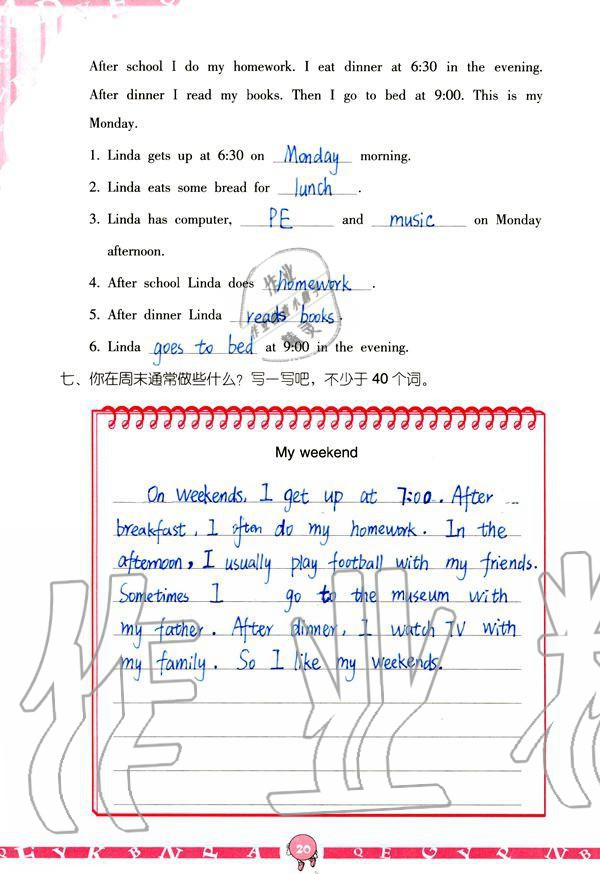 After school I do my homework. I eat dinner at 6:30 in the evening.
After dinner I read my books. Then I go to bed at 9:00. This is my
Monday.
1. Linda gets up at 6:30 on Monday morning.
2. Linda eats some bread for lunch.
3. Linda has computer, PE and music on Monday
afternoon.
4. After school Linda does homework.
5. After dinner Linda reads books.
6. Linda goes to bed at 9:00 in the evening.
七、你在周末通常做些什么？写一写吧，不少于 40 个词。
My weekend
On weekends, I get up at 7:00. After
breakfast, I often do my homework. In the
afternoon, I usually play football with my friends.
Sometimes I go to the museum with
my father. After dinner, I watch TV with
my family. So I like my weekends.
作业精
20